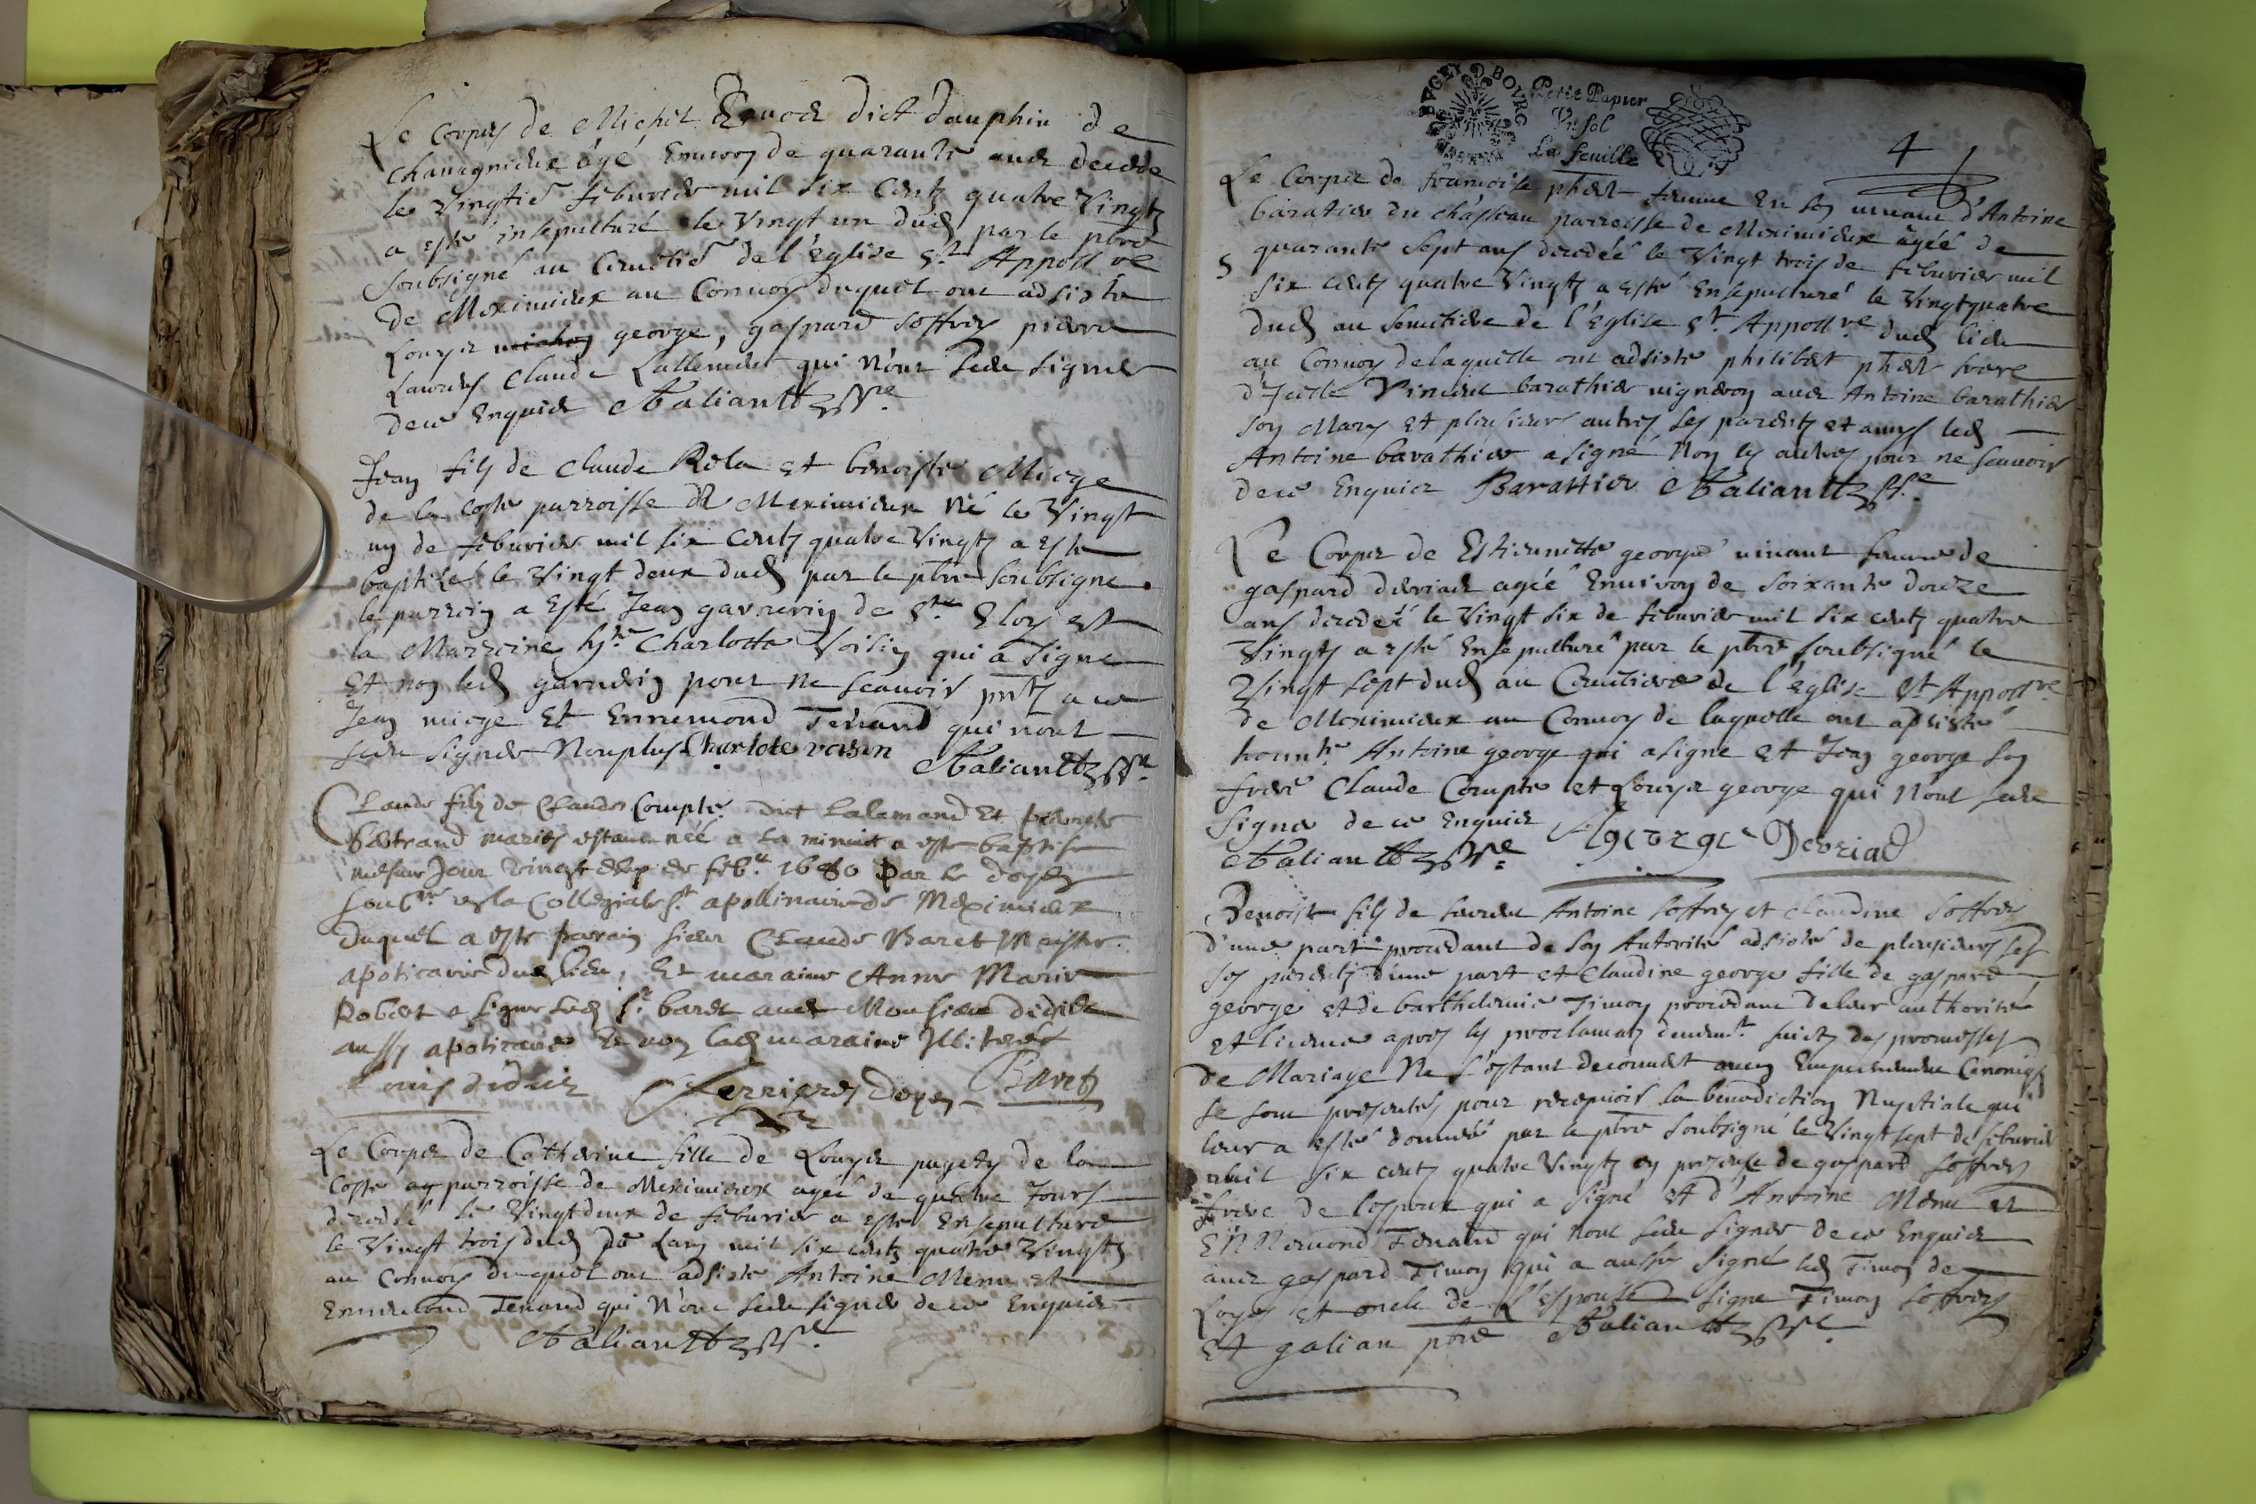 Le Corps de Michel Renod dict dauphin de
chanagnieux âgé Enuiron de quarante ans decede
le Vingtie feburier mil six cents quatre Vingts
a esté insepulturé le Vingt un dud par le pbre
soubsigné au Cimetie de l'Eglise St Appollre
de Meximieux au Conuoy duquel ont adsisté
Louys michon george, gaspard soffrey pierre
Laurens Claude Lallement qui n'ont sceu signer
de ce Enquis Galian pbre
Jean fils de Claude Rola et benoiste Miege
de la Coste parroisse de Meximieux né le Vingt
un de feburier mil six cents quatre Vingts a esté
baptisé le Vingt deux dud par le pbre soubsigne
le parrein a Esté Jean garnerin de Ste Eloy est
la Marreine hste Charlotte Voisin qui a signe
Et non led garnerin pour ne scauoir pnts a ce
Jean miege Et Ennemond Tenand qui n'ont
sceu signer Non plus Charlote voisin Galian pbre
Claude filz de Claude Compte dict Lalamand Et pierrette
Bertrand maries estant néé a la minuit a este baptise
mesme Jour Vingt de feb. 1680 par le doyen
soubne de la Collegiale St apollinaire de Meximieux
duquel a este parain sieur Claude Baret Maistre
apoticaire dud lieu, Et maraine Anne Marie
Robert a signe led sr baret auec Monsieur didier
aussy apoticaire Et non lad maraine Illiterée
Louis didier Ferrieres Doyen Baret
Le Corps de Catherine fille de Louys pugety de la
Coste parroisse de Meximieux agée de quatre Jours
decedée le Vingt deux de feburier a esté Ensepulturé
le Vingt trois dud de Lan mil six cents quatre Vingts
au Conuoy duquel ont adsisté Antoine Menu et
Ennemond Tenand qui n'ont sceu signer de ce Enquis
Galian pbre
BVGEY BOVRG
Petit Papier
Vn Sol
La feuille
4
Le Corps de francoise phet femme En son viuant d'Antoine
baratier du chasteau parroisse de Meximieux âgéé de
quarante sept ans decedéé le Vingt trois de feburier mil
six cents quatre Vingts a esté Ensepulturé le Vingt quatre
dud au Semetiere de l'Eglise St Appollre dud lieu
au Conuoy de laquelle ont adsisté philibert phet frere
d'Icelle Vincent barathier vigneron auec Antoine barathier
son Mary Et plusieurs autres ses parents et amys led
Antoine barathier a signé Non les autres pour ne scauoir
de ce Enquis Barattier Galian pbre
Le Corps de Estiennette george viuant femme de
gaspard deuriad agéé Enuiron de soixante douze
ans decedéé le Vingt six de feburier mil six cents quatre
Vingts a esté Ensepulturé par le pbre soubsigné le
Vingt sept dud au Cimetiere de l'Eglise St Appollre
de Meximieux au Conuoy de laquelle ont adsisté
honnte Antoine george qui a signé et Jean george son
frere Claude Compte et Louys george qui n'ont sceu
signer de ce Enquis A george Devriad
Galian pbre
Benoist fils de Antoine soffrey et Claudine soffrey
d'une part procedant de son Autorité adsisté de plusieurs ses
ses parents d'une part et Claudine george fille de gaspard
george et de barthelemie Timon procedant de leur authorité
et licence apres les proclamats deuement faicts des promesses
de Mariage Ne s'estant decouuert aucun Empechement Canonique
se sont presentes pour recepuoir la benediction Nuptiale qui
leur a esté donnéé par le pbre soubsigné le Vingt sept de feburier
mil six cents quatre Vingts en presence de gaspard soffrey
frere de lespoux qui a signé et d'Antoine Menu et
Ennemond Tenand qui n'ont sceu signer de ce Enquis
auec gaspard Timon qui a aussy signé led Timon de
Loyes et oncle de L'Espouse signe Timon soffrey
Et galian pbre Galian pbre